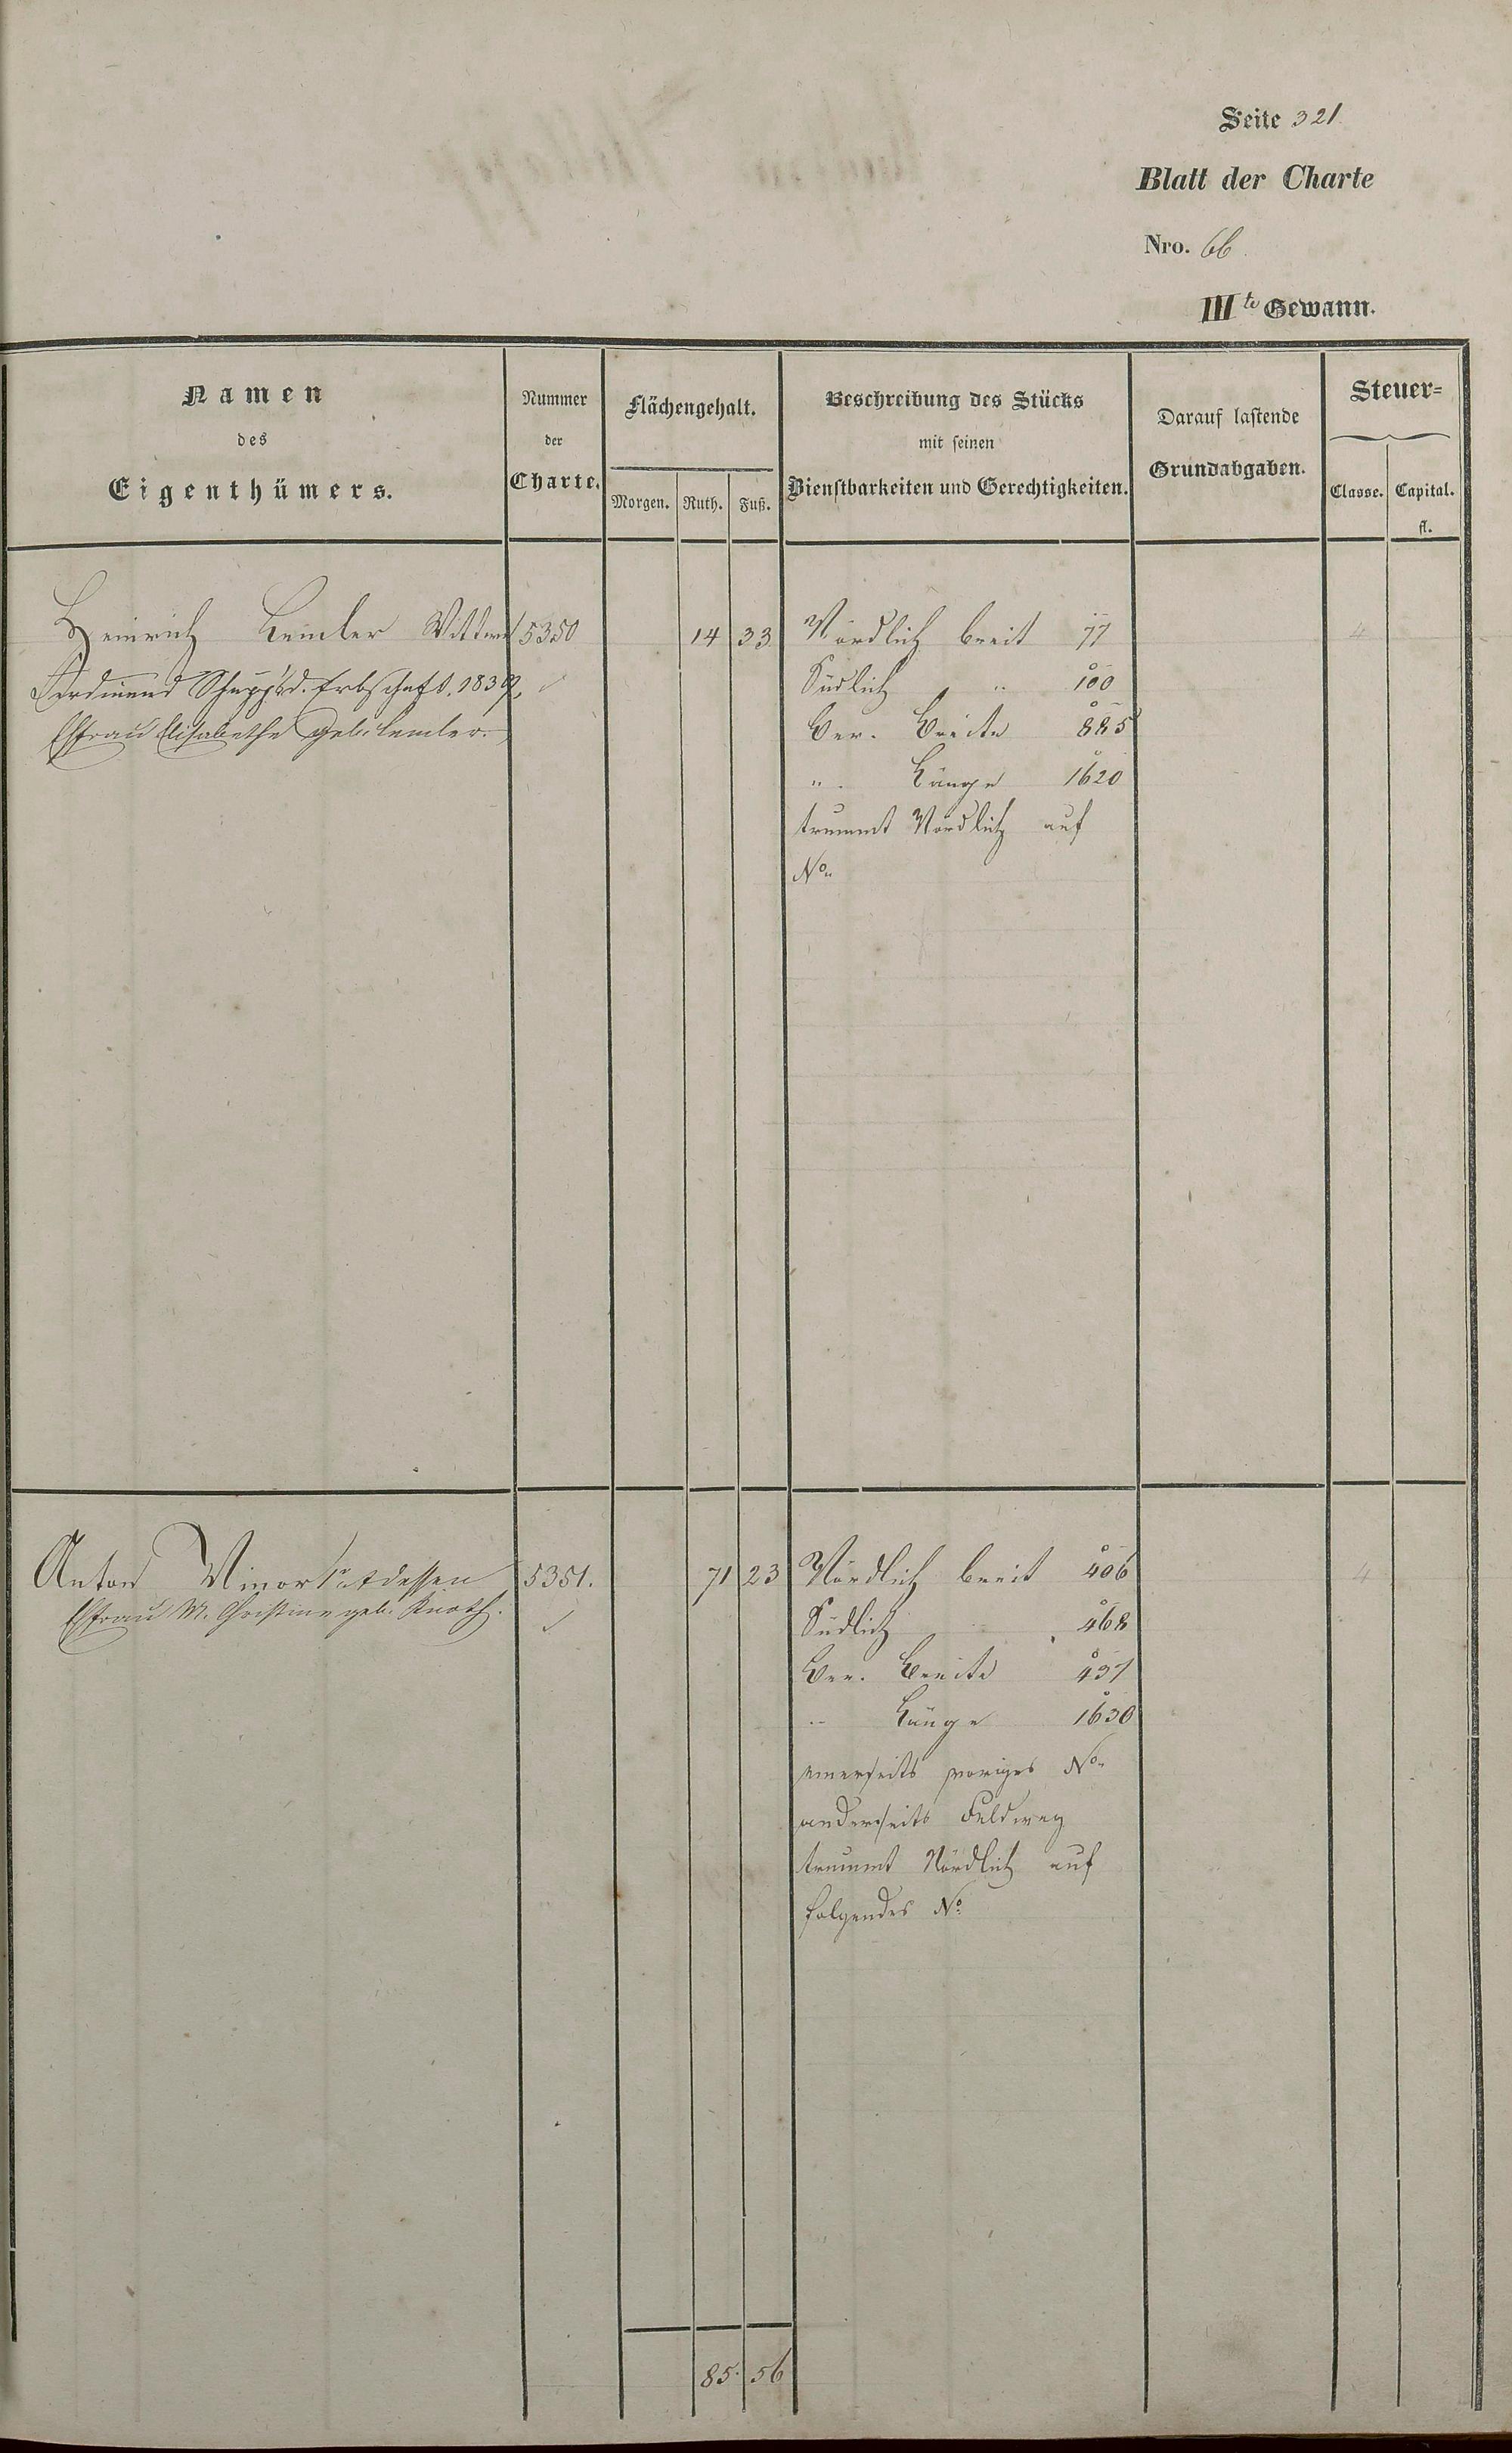 Seite 321
Blatt der Charte
Nro. 66.
III te Gewann.
Namen
des
Eigenthümers.
Nummer
der
Charte.
Flächengehalt.
Morgen. Ruth. Fuß.
Beschreibung des Stücks
mit seinen
Dienstbarkeiten und Gerechtigkeiten.
Darauf lastende
Grundabgaben.
Steuer-
Classe. Capital.
fl.
Heinrich Lemler Wittwe 5350 14 33 Nördlich breit 77 4
Ferdinand Schupp d. Erbschaft. 1839. Südlich " 100
Ehfrau Elisabethe geb. Lemler. Ber. Breite 885
" Länge 1620
trummt Nördlich auf
No.
Anton Minor dessen 5351. 71 23 Nördlich breit 406 4
Ehfrau M. Christine geb. Knoth. Südlich 468
Ber. Breite 437
" Länge 1630
einerseits voriges No.
anderseits Feldweg
trummt Nördlich auf
folgendes No.
85. 56